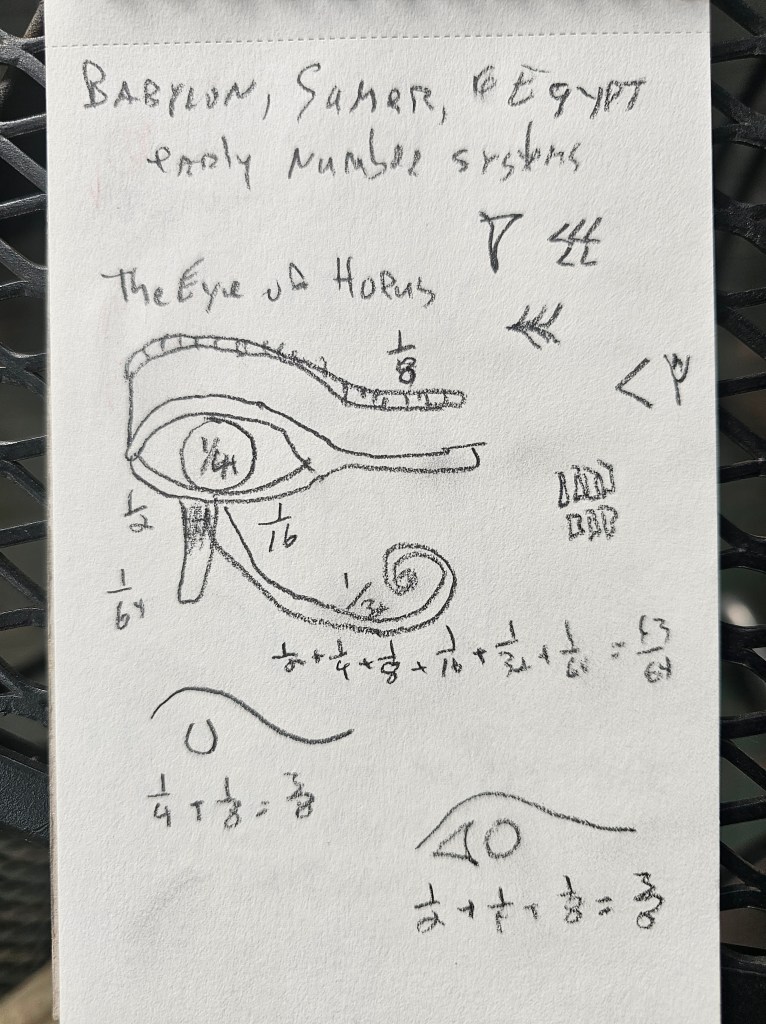 BABYLON, SUMER, & EGYPT
early Number systems
The Eye of Horus
1/8
1/4
1/2
1/16
1/64
1/32
1/2 + 1/4 + 1/8 + 1/16 + 1/32 + 1/64 = 63/64
1/4 + 1/8 = 3/8
1/2 + 1/8 =